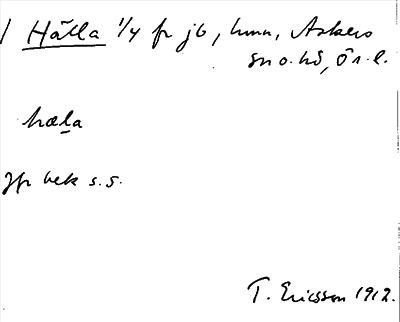 Hälla 1/4 fr jb, hmn, Askers
sn o. hd, Ör. l.
hæla
Jfr bek s. å.
T. Ericsson 1912.